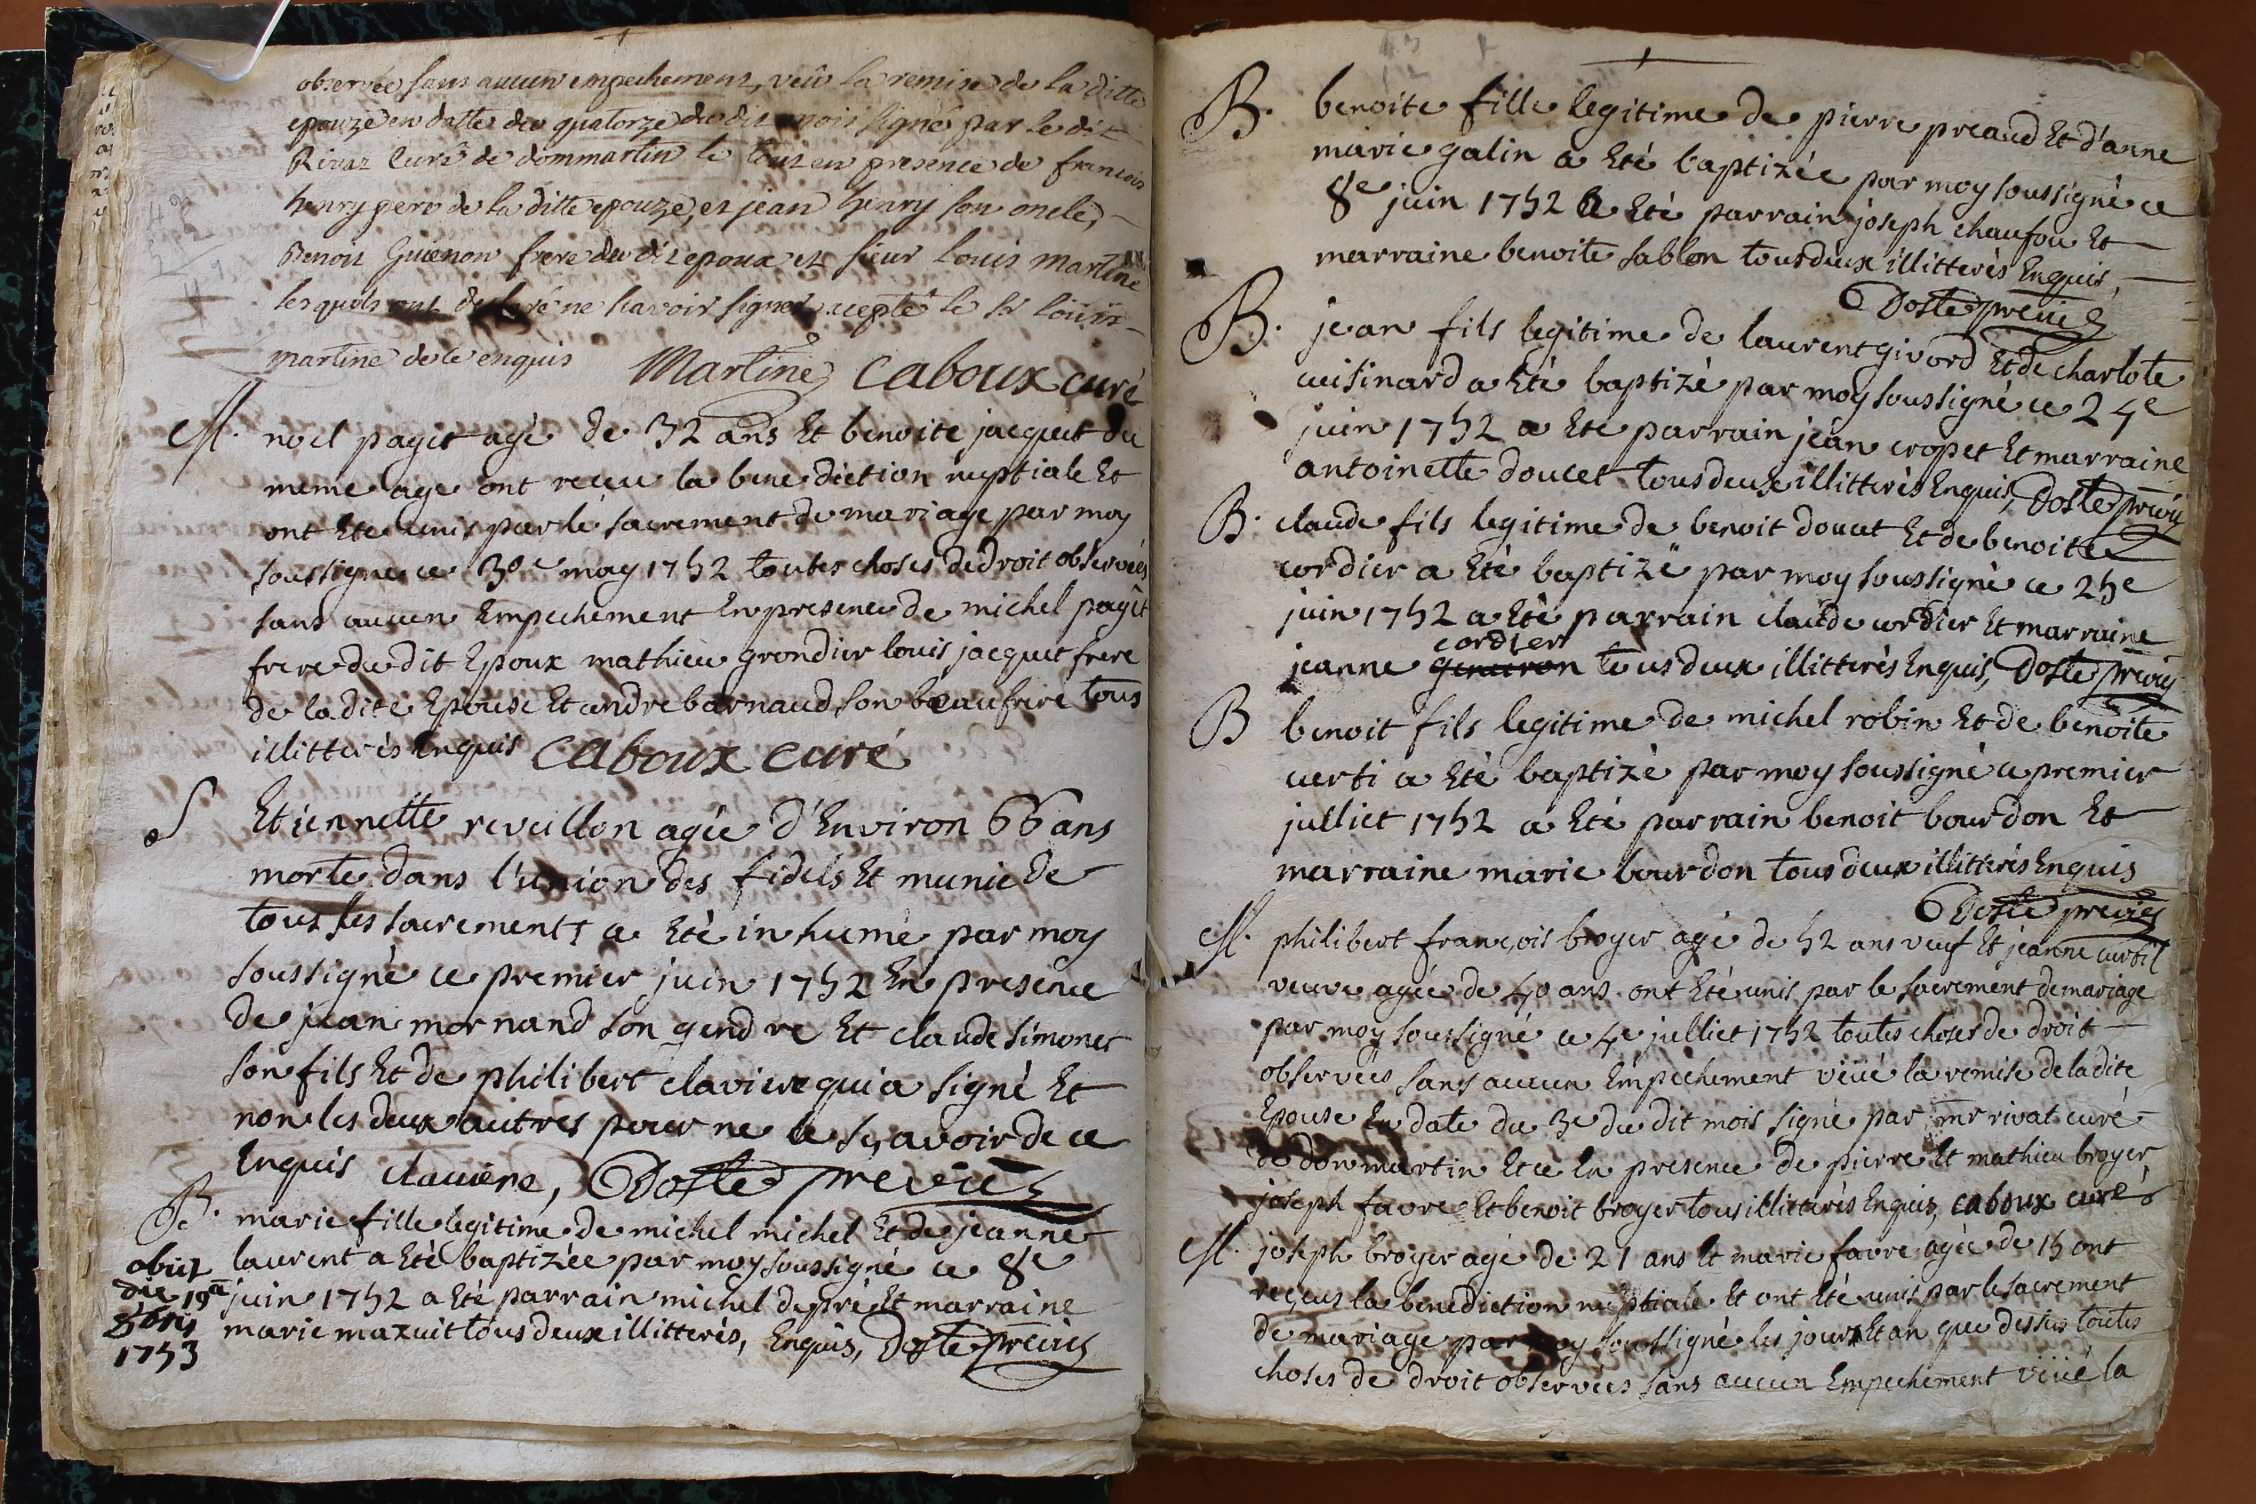 observée sans aucun empechement, veü la remise de la ditte
epouze en datte du quatorze du dit mois signé par le dit
Rivaz curé de dommartin le tout en presence de francois
henry pere de la ditte epouze, et jean henry son oncle,
Benoit Guienon frere du dit epoux et sieur Louis Martine
lesquels ont declaré ne scavoir signer excepté le sr Louis
martine de ce enquis Martine Caboux curé
M. noel paget agé de 32 ans Et benoite jacquet du
meme age ont receu la benediction nuptiale Et
ont Eté unis par le sacrement de mariage par moy
soussigné ce 30e may 1752 toutes choses de droit observées
sans aucun Empechement En presence de michel paget
frere du dit Epoux mathieu grondier louis jacquet frere
de la dite Epouse Et andre barnaud son beaufrere tous
illitterés Enquis Caboux curé
S Etiennette reveillon agée d'Environ 66 ans
morte dans l'union des fidels Et munie de
tous ses sacrements a Eté inhumé par moy
soussigné ce premier juin 1752 En presence
de jean mornand son gendre Et claude simonet
son fils Et de philibert claviere qui a signé Et
non les deux autres pour ne le sçavoir de ce
Enquis claviere, Doste
B. marie fille legitime de michel michel Et de jeanne
laurent a Eté baptizée par moy soussigné ce 8e
juin 1752 a Eté parrain michel depré Et marraine
marie mazuit tous deux illitterés, Enquis, Doste
obiit
die 19a
8bris
1753
B. benoite fille legitime de pierre preaud Et d'anne
marie galin a Eté baptizée par moy soussigné ce
8e juin 1752 a Eté parrain joseph chaufou Et
marraine benoite sablon tous deux illitterés Enquis,
Doste
B. jean fils legitime de laurent givord Et de charlote
cuisinard a Eté baptizé par moy soussigné ce 24e
juin 1752 a Eté parrain jean cropet Et marraine
antoinette doucet tous deux illitterés Enquis, Doste
B. claude fils legitime de benoit doucet Et de benoite
cordier a Eté baptizé par moy soussigné ce 25e
juin 1752 a Eté parrain claude cordier Et marraine
cordier
jeanne tous deux illitterés Enquis, Doste
B benoit fils legitime de michel robin Et de benoite
verti a Eté baptizé par moy soussigné ce premier
julliet 1752 a Eté parrain benoit bourdon Et
marraine marie bourdon tous deux illitterés Enquis
Doste
M. philibert françois broyer agé de 52 ans veuf Et jeanne curtil
veuve agée de 40 ans ont Eté unis par le sacrement de mariage
par moy soussigné ce 4e julliet 1752 toutes choses de droit
observées sans aucun Empechement veüe la remise de la dite
Epouse En date du 3e du dit mois signé par mr rivat curé
de donmartin Et ce En presence de pierre Et mathieu broyer
joseph favre Et benoit broyer tous illitterés Enquis, caboux curé
M. joseph broyer agé de 21 ans Et marie favre agée de 15 ont
reçeus la benediction nuptiale Et ont Eté unis par le sacrement
de mariage par moy soussigné les jours Et an que dessus toutes
choses de droit observées sans aucun Empechement veüe la